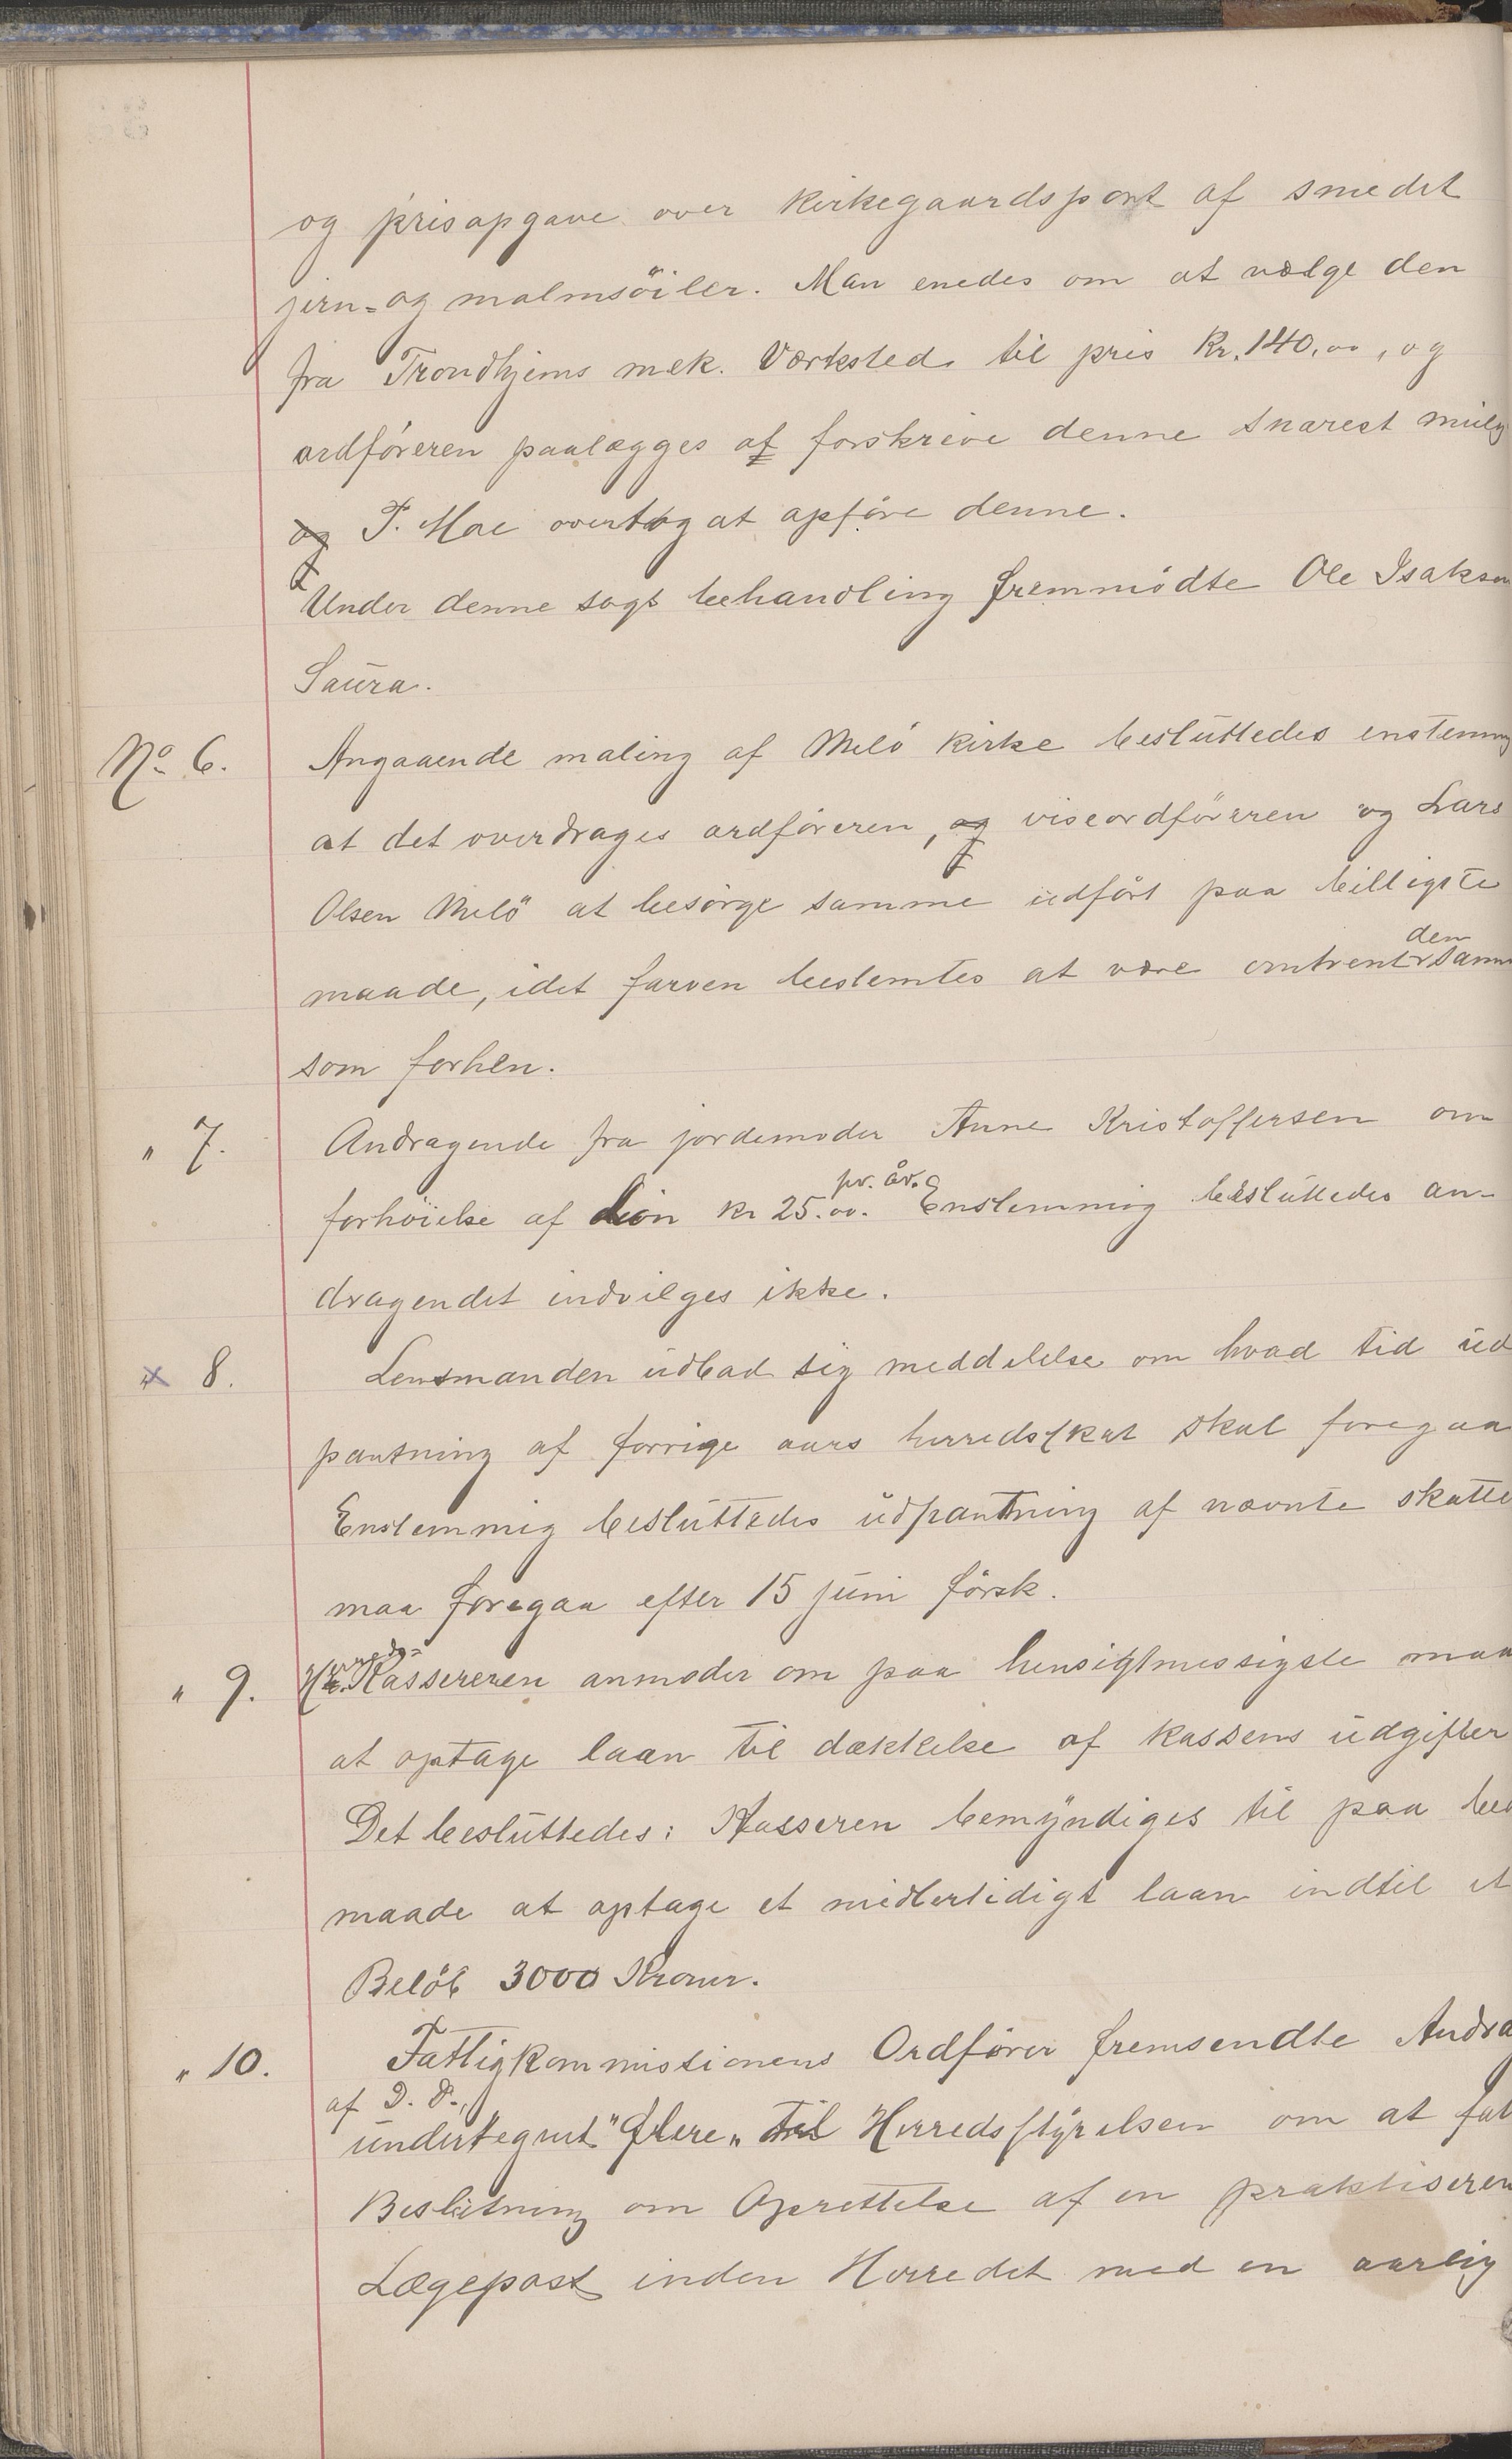 og prisopgave over kirkegaardsport af smedet
jern- og malmsöiler. Man enedes om at vælge den
fra Trondhjems mek. Værksted til pris Kr. 140,00, og
ordföreren paalægges at forskrive denne snarest mulig
og T. Moe overtog at opföre denne.
Under denne sags behandling fremmödte Ole Isaksen
Saura.
No 6. Angaaende maling af Melö kirke besluttedes enstemmig
at det overdrages ordföreren, og viseordföreren og Lars
Olsen Melö at besörge samme udfört paa billigste
den
maade, idet farven bestemtes at være omtrent samme
som forhen.
" 7. Andragende fra jordemoder Anne Kristoffersen om
pr. år.
forhöielse af lön kr 25.00. Enstemmig besluttedes an-
dragendet indvilges ikke.
" 8. Lensmanden udbad sig meddelelse om hvad tid ud
pantning af forrige aars herredsskat skal foregaa
Enstemmig besluttedes udpantning af nævnte skatte
maa foregaa efter 15 juni förstk.
" 9. Herreds- Kassereren anmoder om paa hensigtmessigste maa
at optage laan til dækkelse af kassens udgifter
Det besluttedes: Kasseren bemyndiges til paa bed
maade at optage et midlertidigt laan indtil et
Belöb 3000 Kroner.
" 10. Fattigkommissionens Ordförer fremsendte Andra
af D. D.,
undertegnet "flere" til Herredsstyrelsen om at fat
Beslutning om Oprettelse af en praktiseren
Lægepost inden Herredet med en aarlig